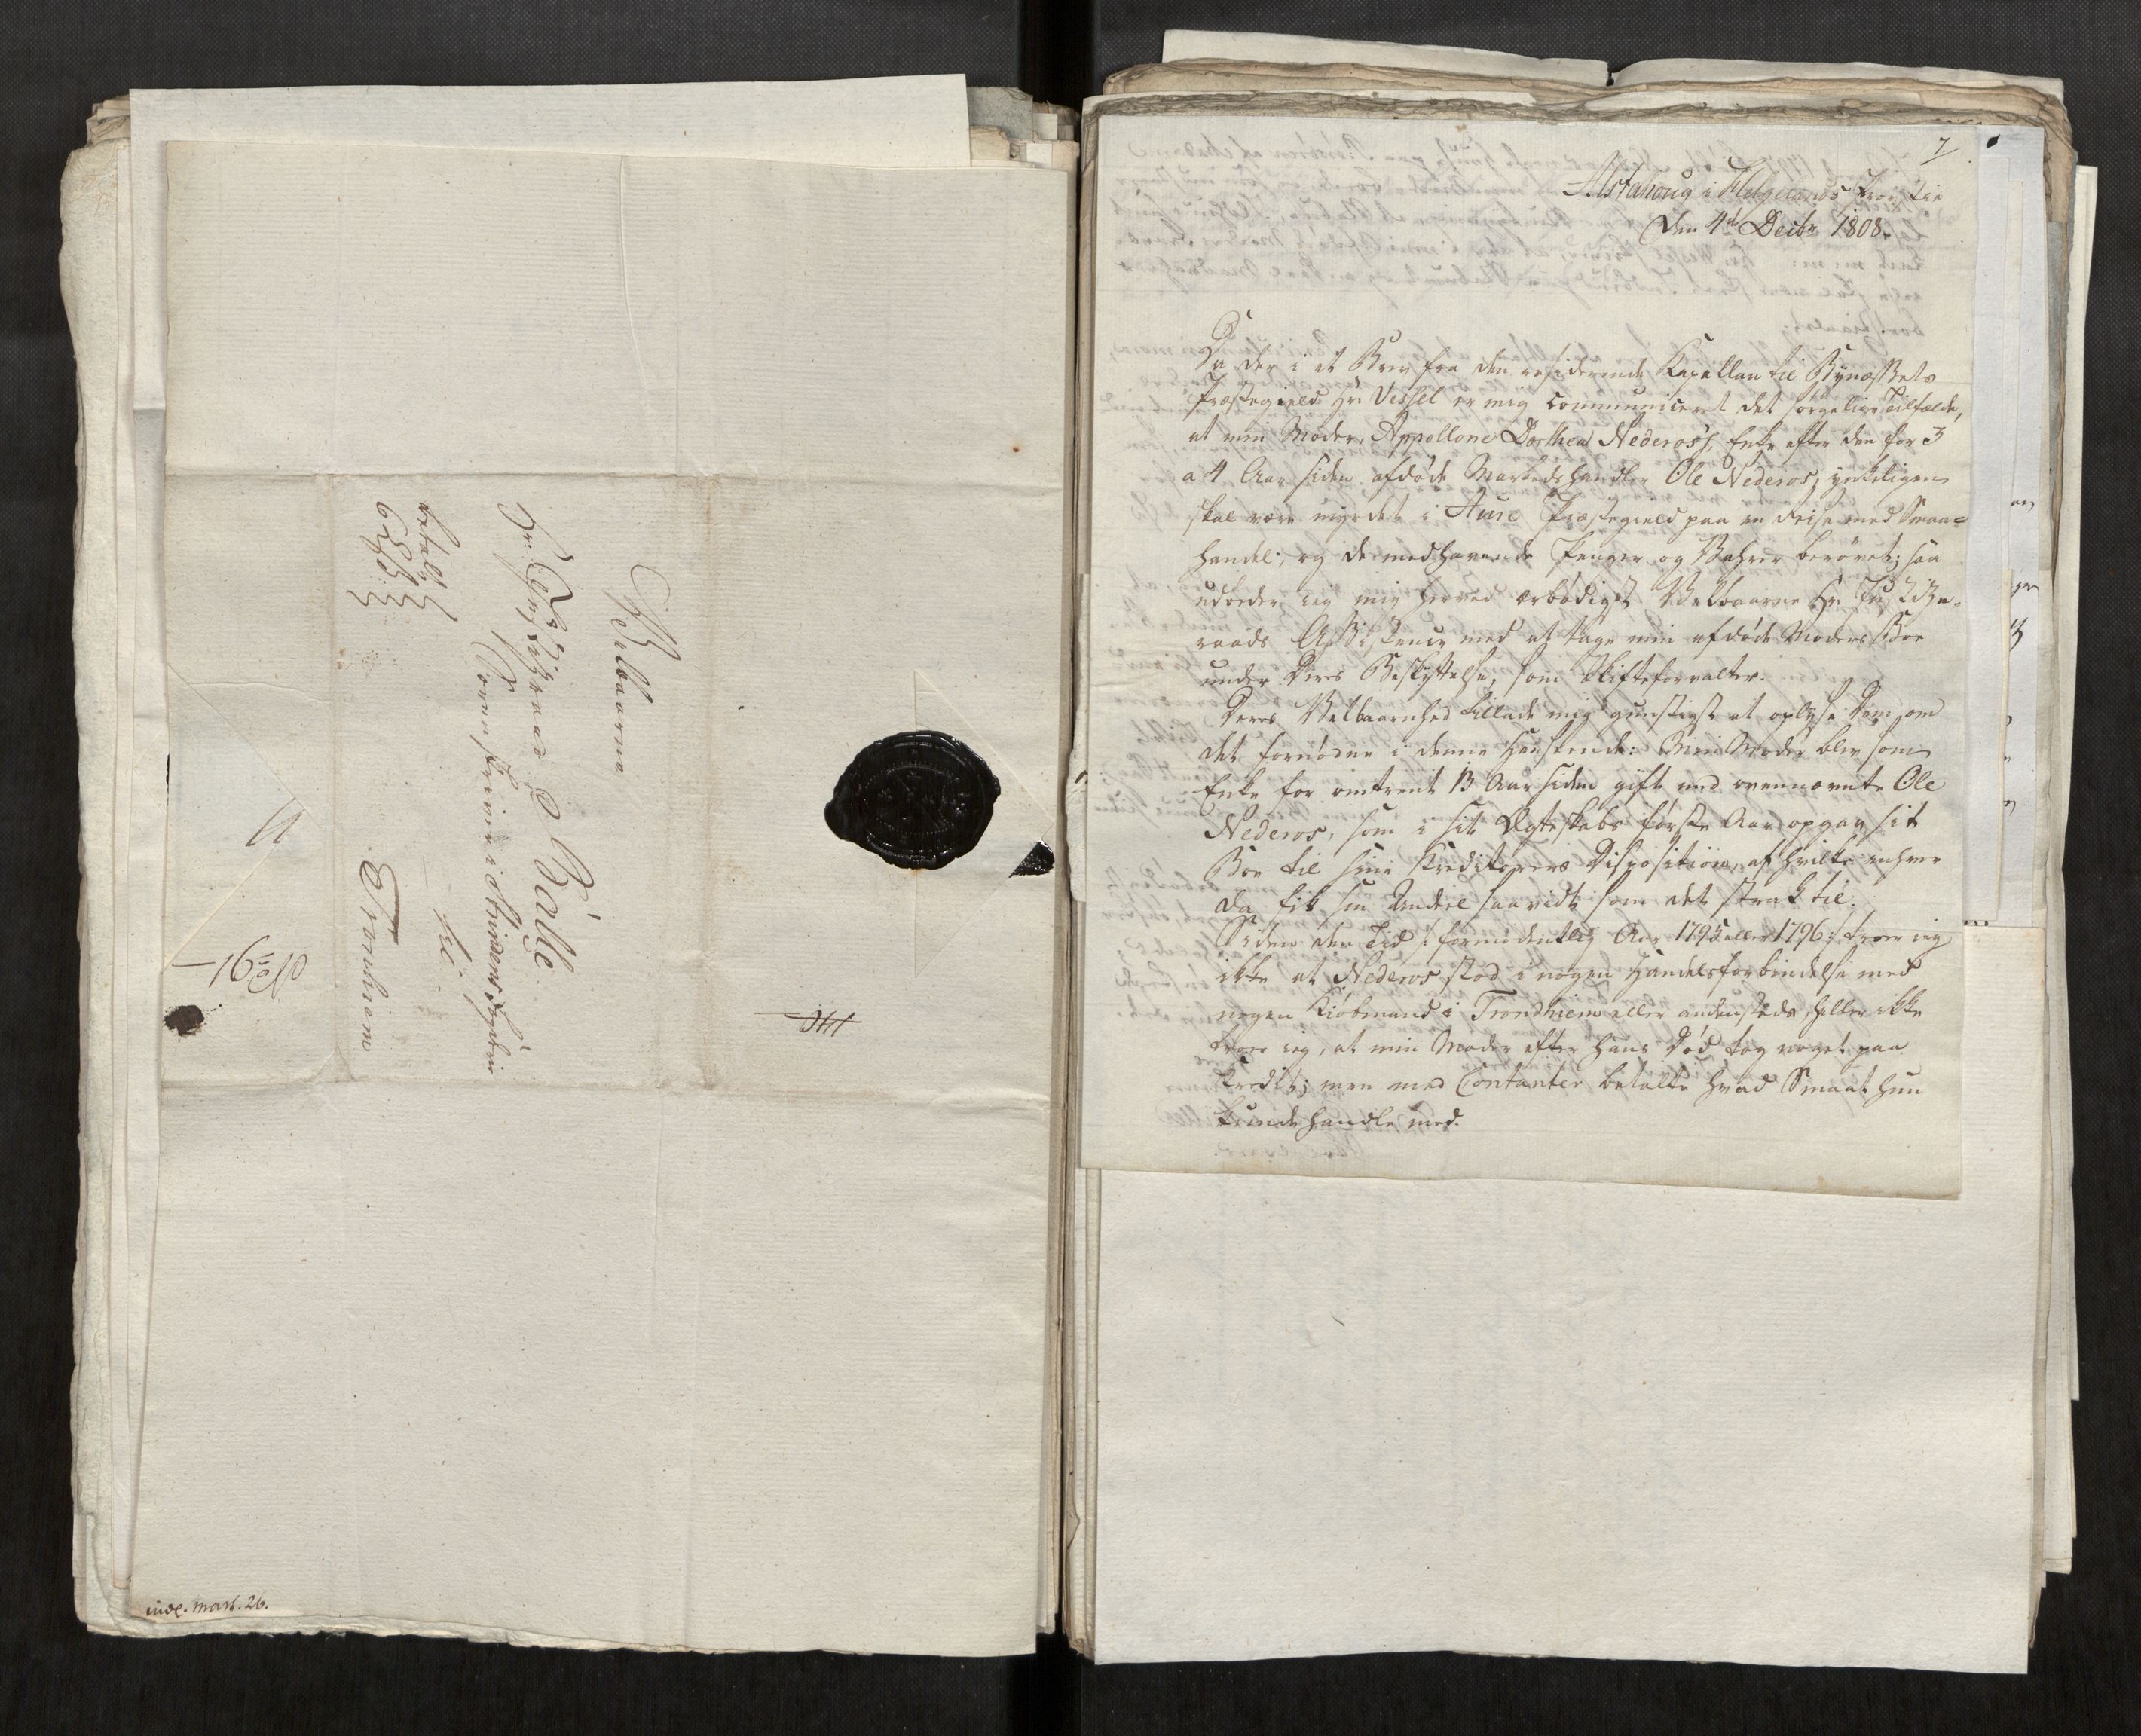 Velbaarne
Hr. Justitzraad Balle
Sorenskriver i Strindens Fogderie
til
Trondhiem
betalt
6 s
16
indl. mark. 26.
7
Alstahoug i Helgelands Provstie
den 4de Decbr 1808.
Da der i et Brev fra den residerende Kapellan til Bynæssets
Præstegield Hr. Vessel er mig communiceret det sørgelige Tilfælde,
at min Moder, Appollone Dorthea Nederos, Enke efter den for 3
a 4 Aar siden afdøde Markedshandler Ole Nederos, ynkeligen
skal være myrdet i Aure Præstegield paa en Reise med Smaa-
handel; og de medhavende Penger og Vahrer berøvet; saa
udbeder jeg mig herved ærbødigst Velbaarne Hr. Justitz-
raads Assistence med at tage min afdøde Moders Boe
under Deres Beskyttelse, som Skifteforvalter.
Deres Velbaarnhed tillade mig gunstigst at oplyse Dem om
det fornødne i denne Henseende: Min Moder blev som
Enke for omtrent 13 Aar siden gift med ovennævnte Ole
Nederos, som i sit Ægteskabs første Aar opgav sit
Boe til sine Kreditorers Disposition, af hvilke enhver
da fik sin Andeel saavidt som det strak til.
Siden den Tid /: formodentlig Aar 1795 eller 1796 :/ troer jeg
ikke at Nederos stod i nogen Handelsforbindelse med
nogen Kiøbmand i Trondhiem eller andensteds, heller ikke
troer jeg, at min Moder efter hans Død tog noget paa
Kredit; men med Contanter betalte hvad Smaat hun
kunde handle med.